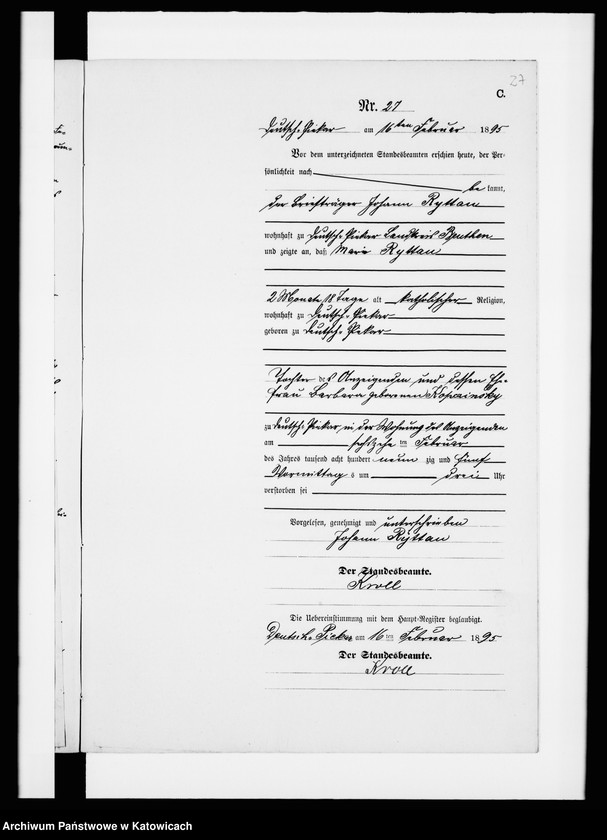 27
C.
Nr. 27
Deutsch-Piekar am 16ten Februar 1895
Vor dem unterzeichneten Standesbeamten erschien heute, der Per-
sönlichkeit nach
bekannt,
der Briefträger Johann Ryttan
wohnhaft zu Deutsch-Piekar Landkreis Beuthen
und zeigte an, daß Marie Ryttan
2 Monate 18 Tage alt katholischer Religion,
wohnhaft zu Deutsch-Piekar
geboren zu Deutsch-Piekar
Tochter des Anzeigenden und dessen Ehe-
frau Barbara geborenen
zu Deutsch-Piekar, in der Wohnung des Anzeigenden
am sechszehnten Februar
des Jahres tausend acht hundert neunzig und fünf
Vormittags um drei Uhr
verstorben sei
Vorgelesen, genehmigt und unterschrieben
Johann Ryttan
Der Standesbeamte.
Kroll
Die Uebereinstimmung mit dem Haupt-Register beglaubigt.
Deutsch-Piekar am 16ten Februar 1895
Der Standesbeamte.
Kroll
Archiwum Państwowe w Katowicach